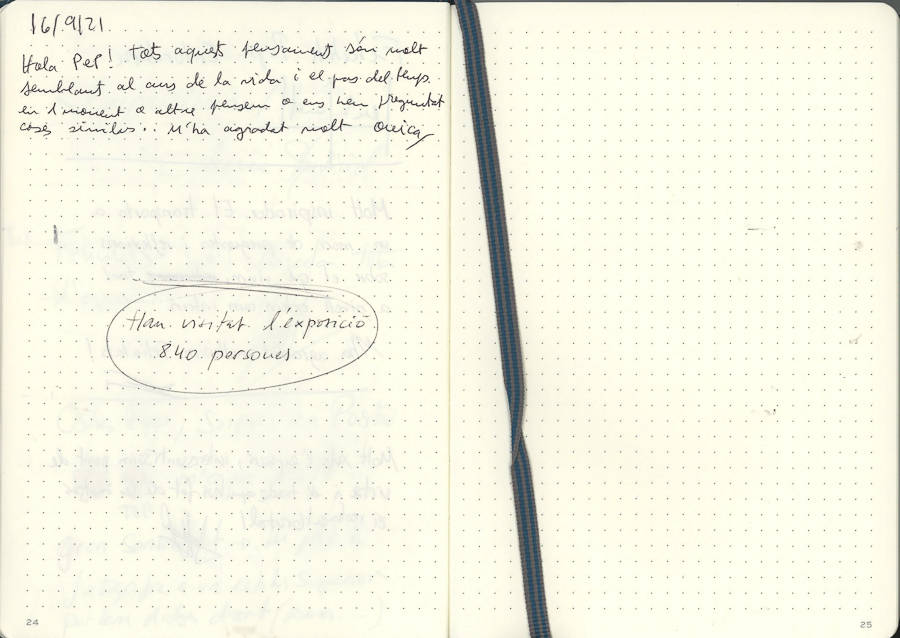 16/9/21
Hola Pep! tots aquest pensament són molt
semblant al curs de la vida i el pas del temps
en 1 moment o altre pensem o ens hem preguntat
coses similis.. M'ha agradat molt
Han visitat l'exposició
840 persones
24
25